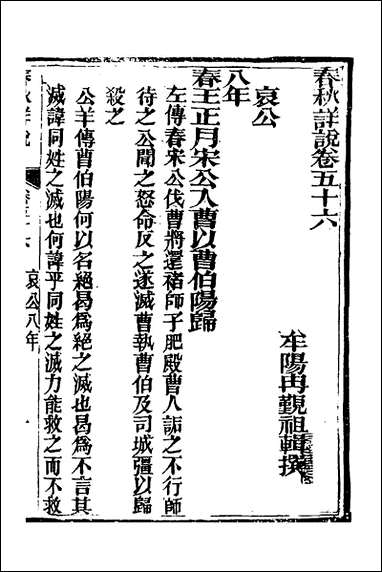 春秋詳說卷五十六
牟陽冉覲祖輯撰
哀公
八年
春王正月宋公入曹以曹伯陽歸
左傳春宋公伐曹將還褚師子肥殿曹人詬之不行師
待之公聞之怒命反之遂滅曹執曹伯及司城彊以歸
殺之
公羊傳曹伯陽何以名絕曷爲絕之滅也曷爲不言其
滅諱同姓之滅也何諱乎同姓之滅力能救之而不救
哀公八年